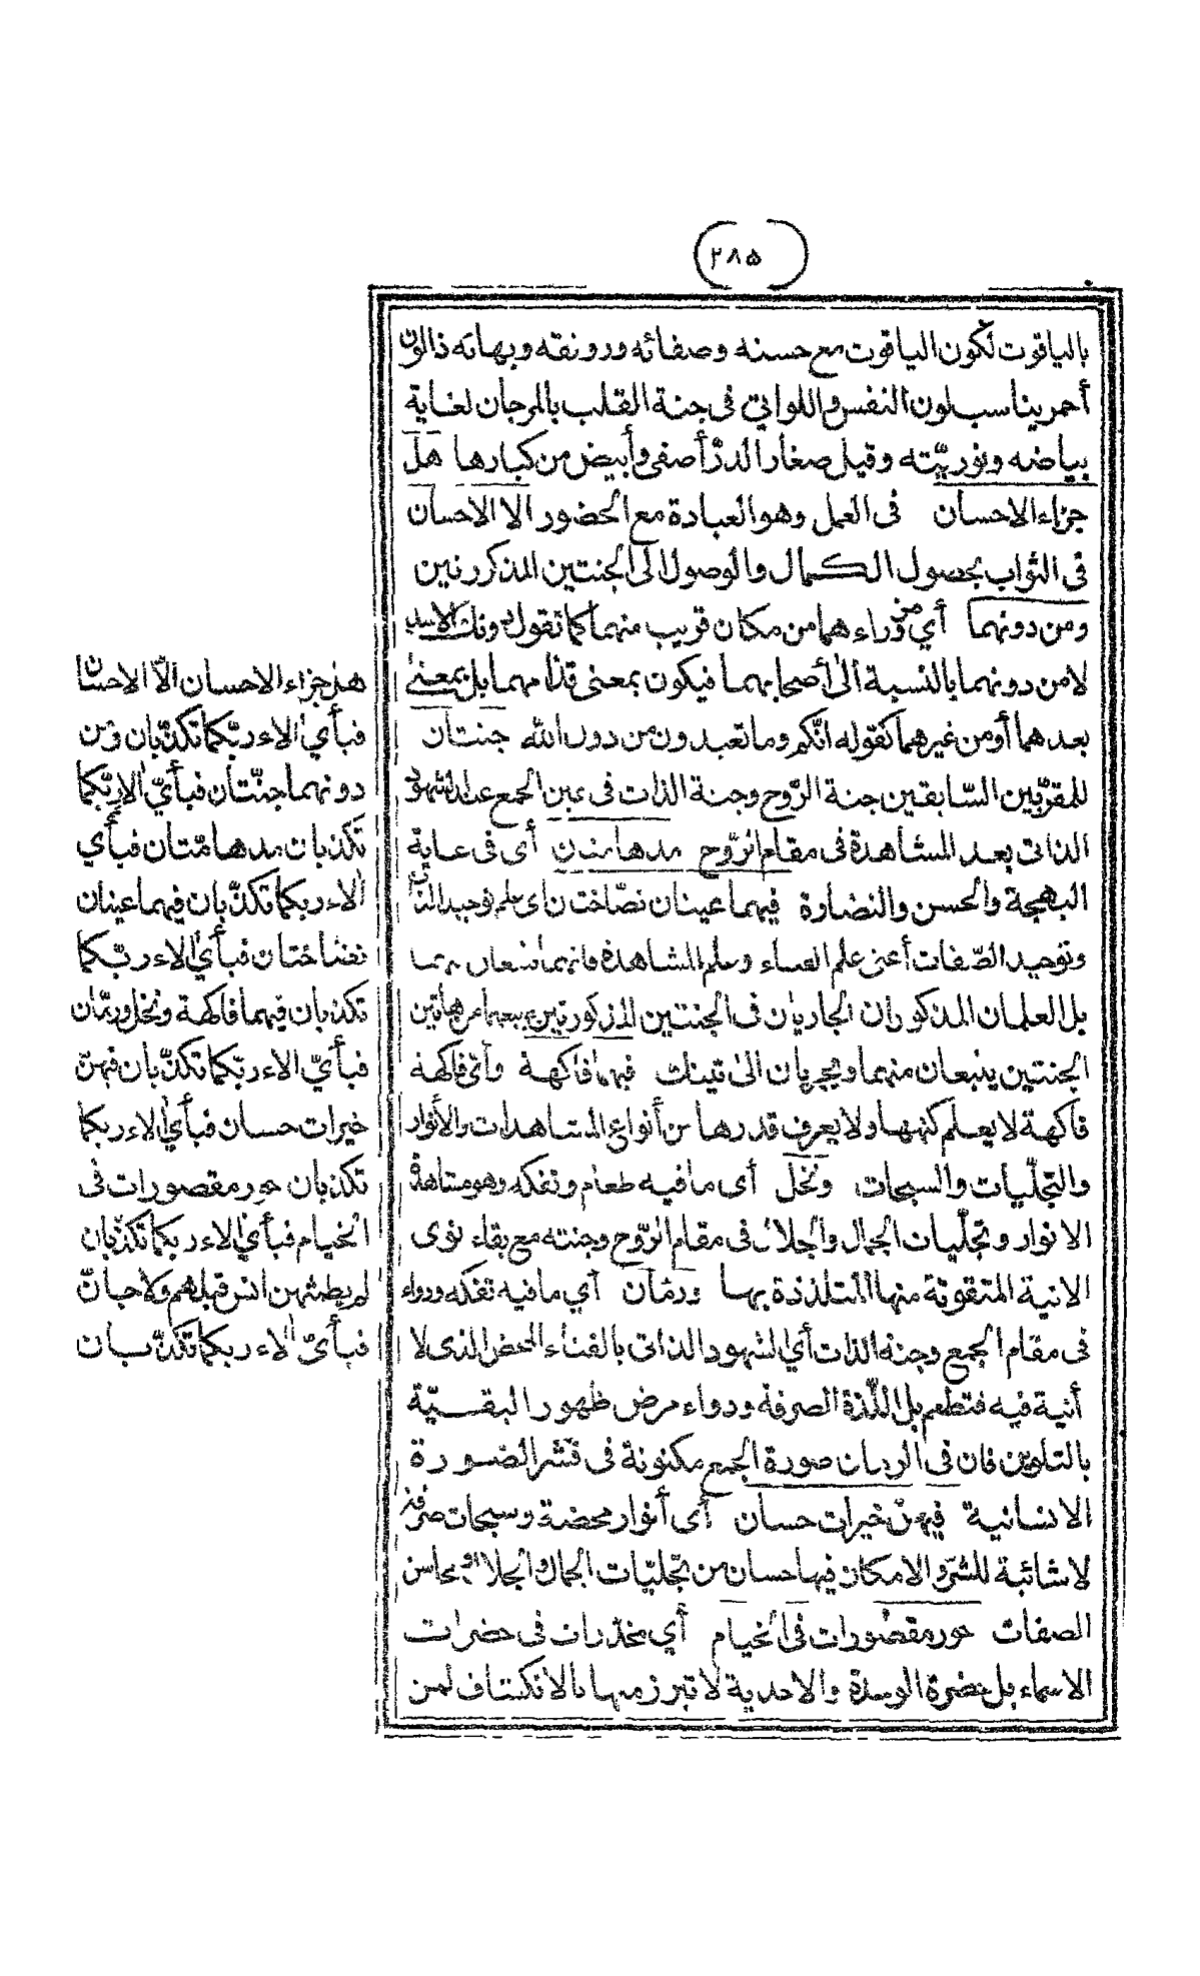 (٢٨٥)
بالياقوت لكون الياقوت مع حسنه وصفائه ورونقه وبهائه ذا لون
أحمر يناسب لون النفس واللواتي في جنة القلب بالمرجان لغاية
بياضه ونوريّته وقيل صغار الدرّ أصفى وأبيض من كبارها هل
جزاء الاحسان في العمل وهو العبادة مع الحضور الا الاحسان
في الثواب بحصول الكمال والوصول الى الجنتين المذكورتين
ومن دونهما أي من وراءهما من مكان قريب منهما كما تقول دونك الاسد
لا من دونهما بالنسبة الى أصحابهما فيكون بمعنى قدّامهما بل بمعنى
بعدهما أو من غيرهما كقوله انّكم وما تعبدون من دون الله جنتان
للمقرّبين السّابقين جنة الرّوح وجنة الذات في عين الجمع عند الشهود
الذاتي بعد المشاهدة في مقام الرّوح مدهامتان أي في غاية
البهجة والحسن والنضارة فيهما عينان نضّاختان أي علم توحيد الذات
وتوحيد الصّفات أعني علم الفناء وعلم المشاهدة فانهما ينبعان بهما
بل العلمان المذكوران الجاريان في الجنتين المذكورتين ينبعهما من هاتين
الجنتين ينبعان منهما ويجريان الى تينك فيهما فاكهة وأيّ فاكهة
فاكهة لا يعلم كنهها ولا يعرف قدرها من أنواع المشاهدات والأنوار
والتجلّيات والسبحات ونخل أي ما فيه طعام وتفكه وهو مشاهدة
الانوار وتجلّيات الجمال والجلال في مقام الرّوح وجنته مع بقاء نوى
الانية المتقوتة منها المتلذذة بها ورمّان أي ما فيه تفكه ودواء
في مقام الجمع وجنة الذات أي الشهود الذاتي بالفناء المحض الذي لا
أنية فيه فتطعم بل اللّذة الصرفة ودواء مرض ظهور البقيّة
بالتلوين فان في الرمان صورة الجمع مكنونة في قشر الصّورة
الانسانية فيهنّ خيرات حسان أي أنوار محضة وسبحات صرفة
لا شائبة للشرّ والامكان فيها حسان من تجلّيات الجمال والجلال ومحاسن
الصفات حور مقصورات في الخيام أي مخدّرات في حضرات
الاسماء بل حضرة الوحدة والاحدية لا تبرز منها بالانكشاف لمن
هل جزاء الاحسان الّا الاحسان
فبأيّ الاء ربّكما تكذّبان ومن
دونهما جنّتان فبأيّ الاء ربّكما
تكذبان مدهامّتان فبأي
الاء ربكما تكذّبان فيهما عينان
نضّاختان فبأيّ الاء ربّكما
تكذبان فيهما فاكهة ونخل ورمّان
فبأيّ الاء ربّكما تكذّبان فيهنّ
خيرات حسان فبأيّ الاء ربكما
تكذبان حور مقصورات في
الخيام فبأيّ الاء ربكما تكذّبان
لم يطمثهن انس قبلهم ولا جانّ
فبأيّ الاء ربكما تكذّبان